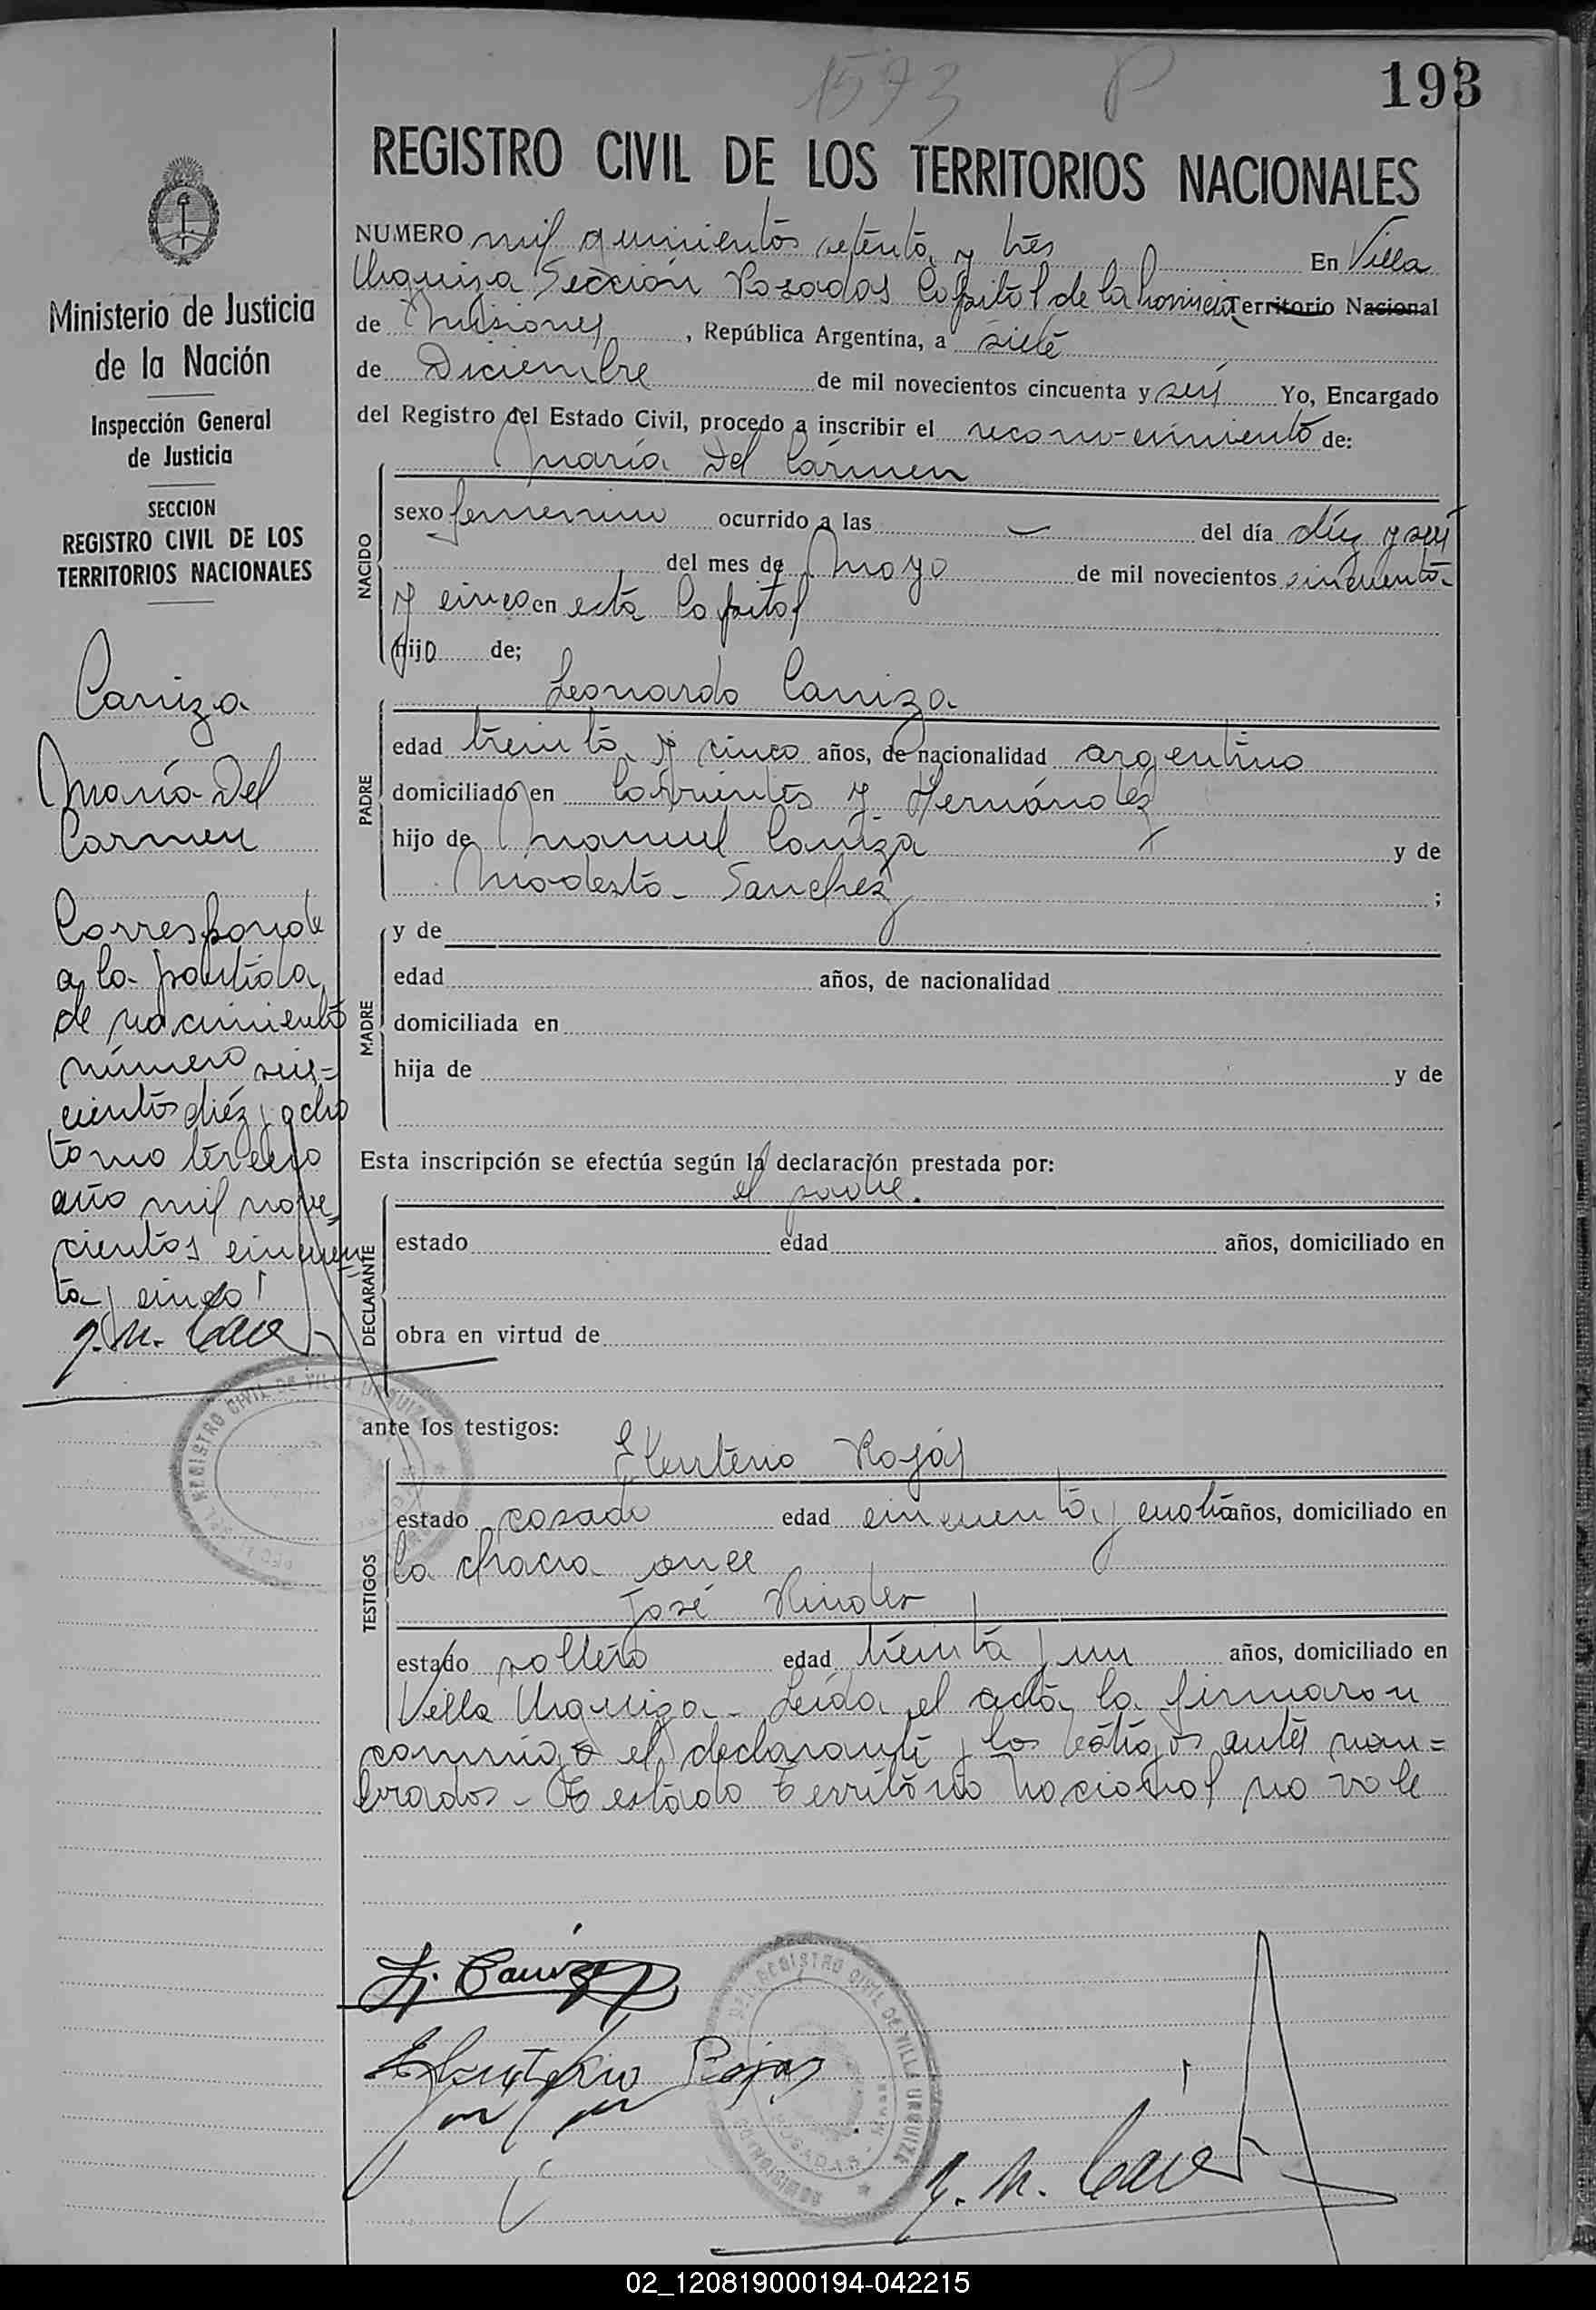 1573 P
193
REGISTRO CIVIL DE LOS TERRITORIOS NACIONALES
NUMERO mil quinientos setenta y tres En Villa
Urquiza Sección Posadas Capital de la Provincia Territorio Nacional
de Misiones, República Argentina, a siete
de Diciembre de mil novecientos cincuenta y seis Yo, Encargado
del Registro del Estado Civil, procedo a inscribir el reconocimiento de:
María Del Cármen
NACIDO
sexo femenino ocurrido a las — del día diez y seis
del mes de Mayo de mil novecientos cincuenta
y cinco en esta Capital
hijo de;
Leonardo Caniza
PADRE
edad treinta y cinco años, de nacionalidad argentino
domiciliado en Corrientes y Hernández
hijo de Manuel Caniza y de
Modesta Sanchez ;
MADRE
y de
edad años, de nacionalidad
domiciliada en
hija de y de
Esta inscripción se efectúa según la declaración prestada por:
el padre.
DECLARANTE
estado edad años, domiciliado en
obra en virtud de
ante los testigos:
Eleuterio Rojas
TESTIGOS
estado casado edad cincuenta y cuatro años, domiciliado en
la chacra once
José
estado soltero edad treinta y un años, domiciliado en
Villa Urquiza - Leída el acta la firmaron
conmigo el declarante y los testigos antes nom=
brados - Testado Territorio Nacional no vale
Ministerio de Justicia
de la Nación
Inspección General
de Justicia
SECCION
REGISTRO CIVIL DE LOS
TERRITORIOS NACIONALES
Caniza
María Del
Carmen
Corresponde
a la partida
de nacimiento
número seis=
cientos diéz y ocho
tomo tercero
año mil nove=
cientos cincuen=
ta y cinco
REGISTRO CIVIL DE VILLA URQUIZA
L. Caniza
Eleuterio Rojas
DEL REGISTRO CIVIL DE VILLA URQUIZA
POSADAS
02_120819000194-042215